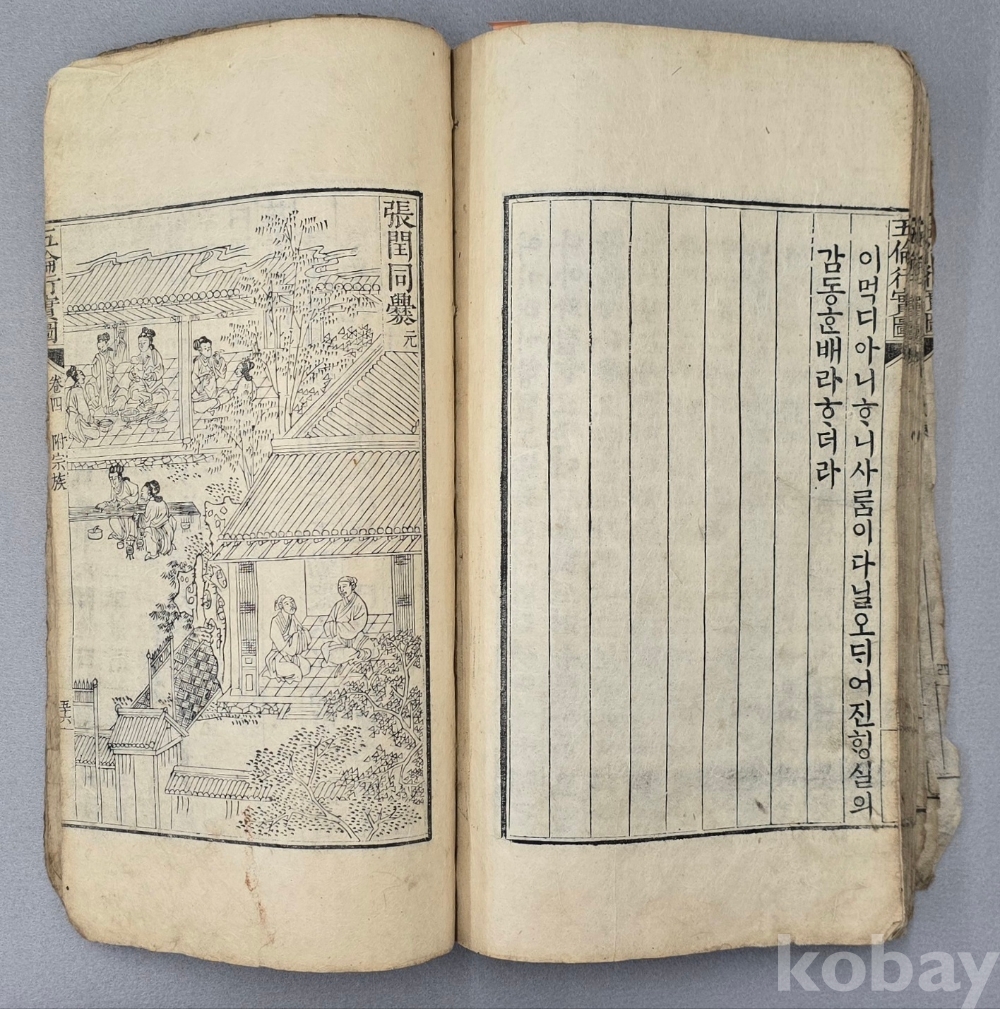 五倫行實圖
이먹디아니ᄒᆞ니사ᄅᆞᆷ이다닐오ᄃᆡ어진ᄒᆡᆼ실의
감동ᄒᆞᆫ배라ᄒᆞ더라
張閏同爨 元
五倫行實圖 卷四 附宗族 五六
kobay